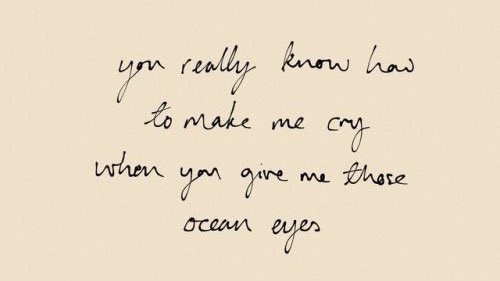 you really know how
to make me cry
when you give me those
ocean eyes